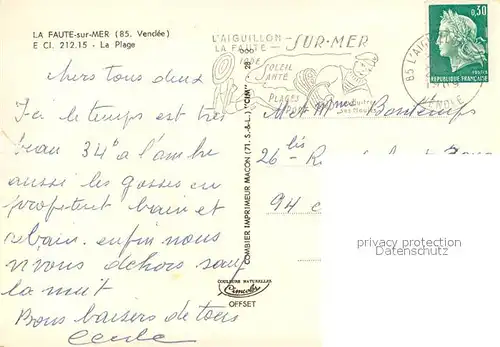 LA FAUTE-sur-MER (85. Vendée)
E CI. 212.15 - La Plage
L'AIGUILLON
LA FAUTE - SUR-MER
IODE
SOLEIL
SANTÉ
PLAGES
85 L'AIGU
VENDÉE
0,30
REPUBLIQUE FRANÇAISE
chers tous deux
Ici le temps est très
beau 34° à l'ombre
aussi les gosses en
profitent bain et
rebain. enfin nous
vivons dehors sauf
la nuit
Bons baisers de tous
Cecile
COMBIER IMPRIMEUR MACON (71. S.-&-L.) "CIM"
COULEURS NATURELLES
Cimcolor
OFFSET
M et Mme Bontemps
26 bis
94
privacy protection
Datenschutz